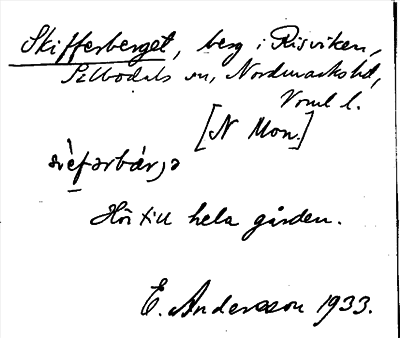 Skifferberget, berg i Risviken,
Silbodals sn, Nordmarks hd,
Vrml l.
[N Mon.]
Hör till hela gården.
E. Andersson 1933.